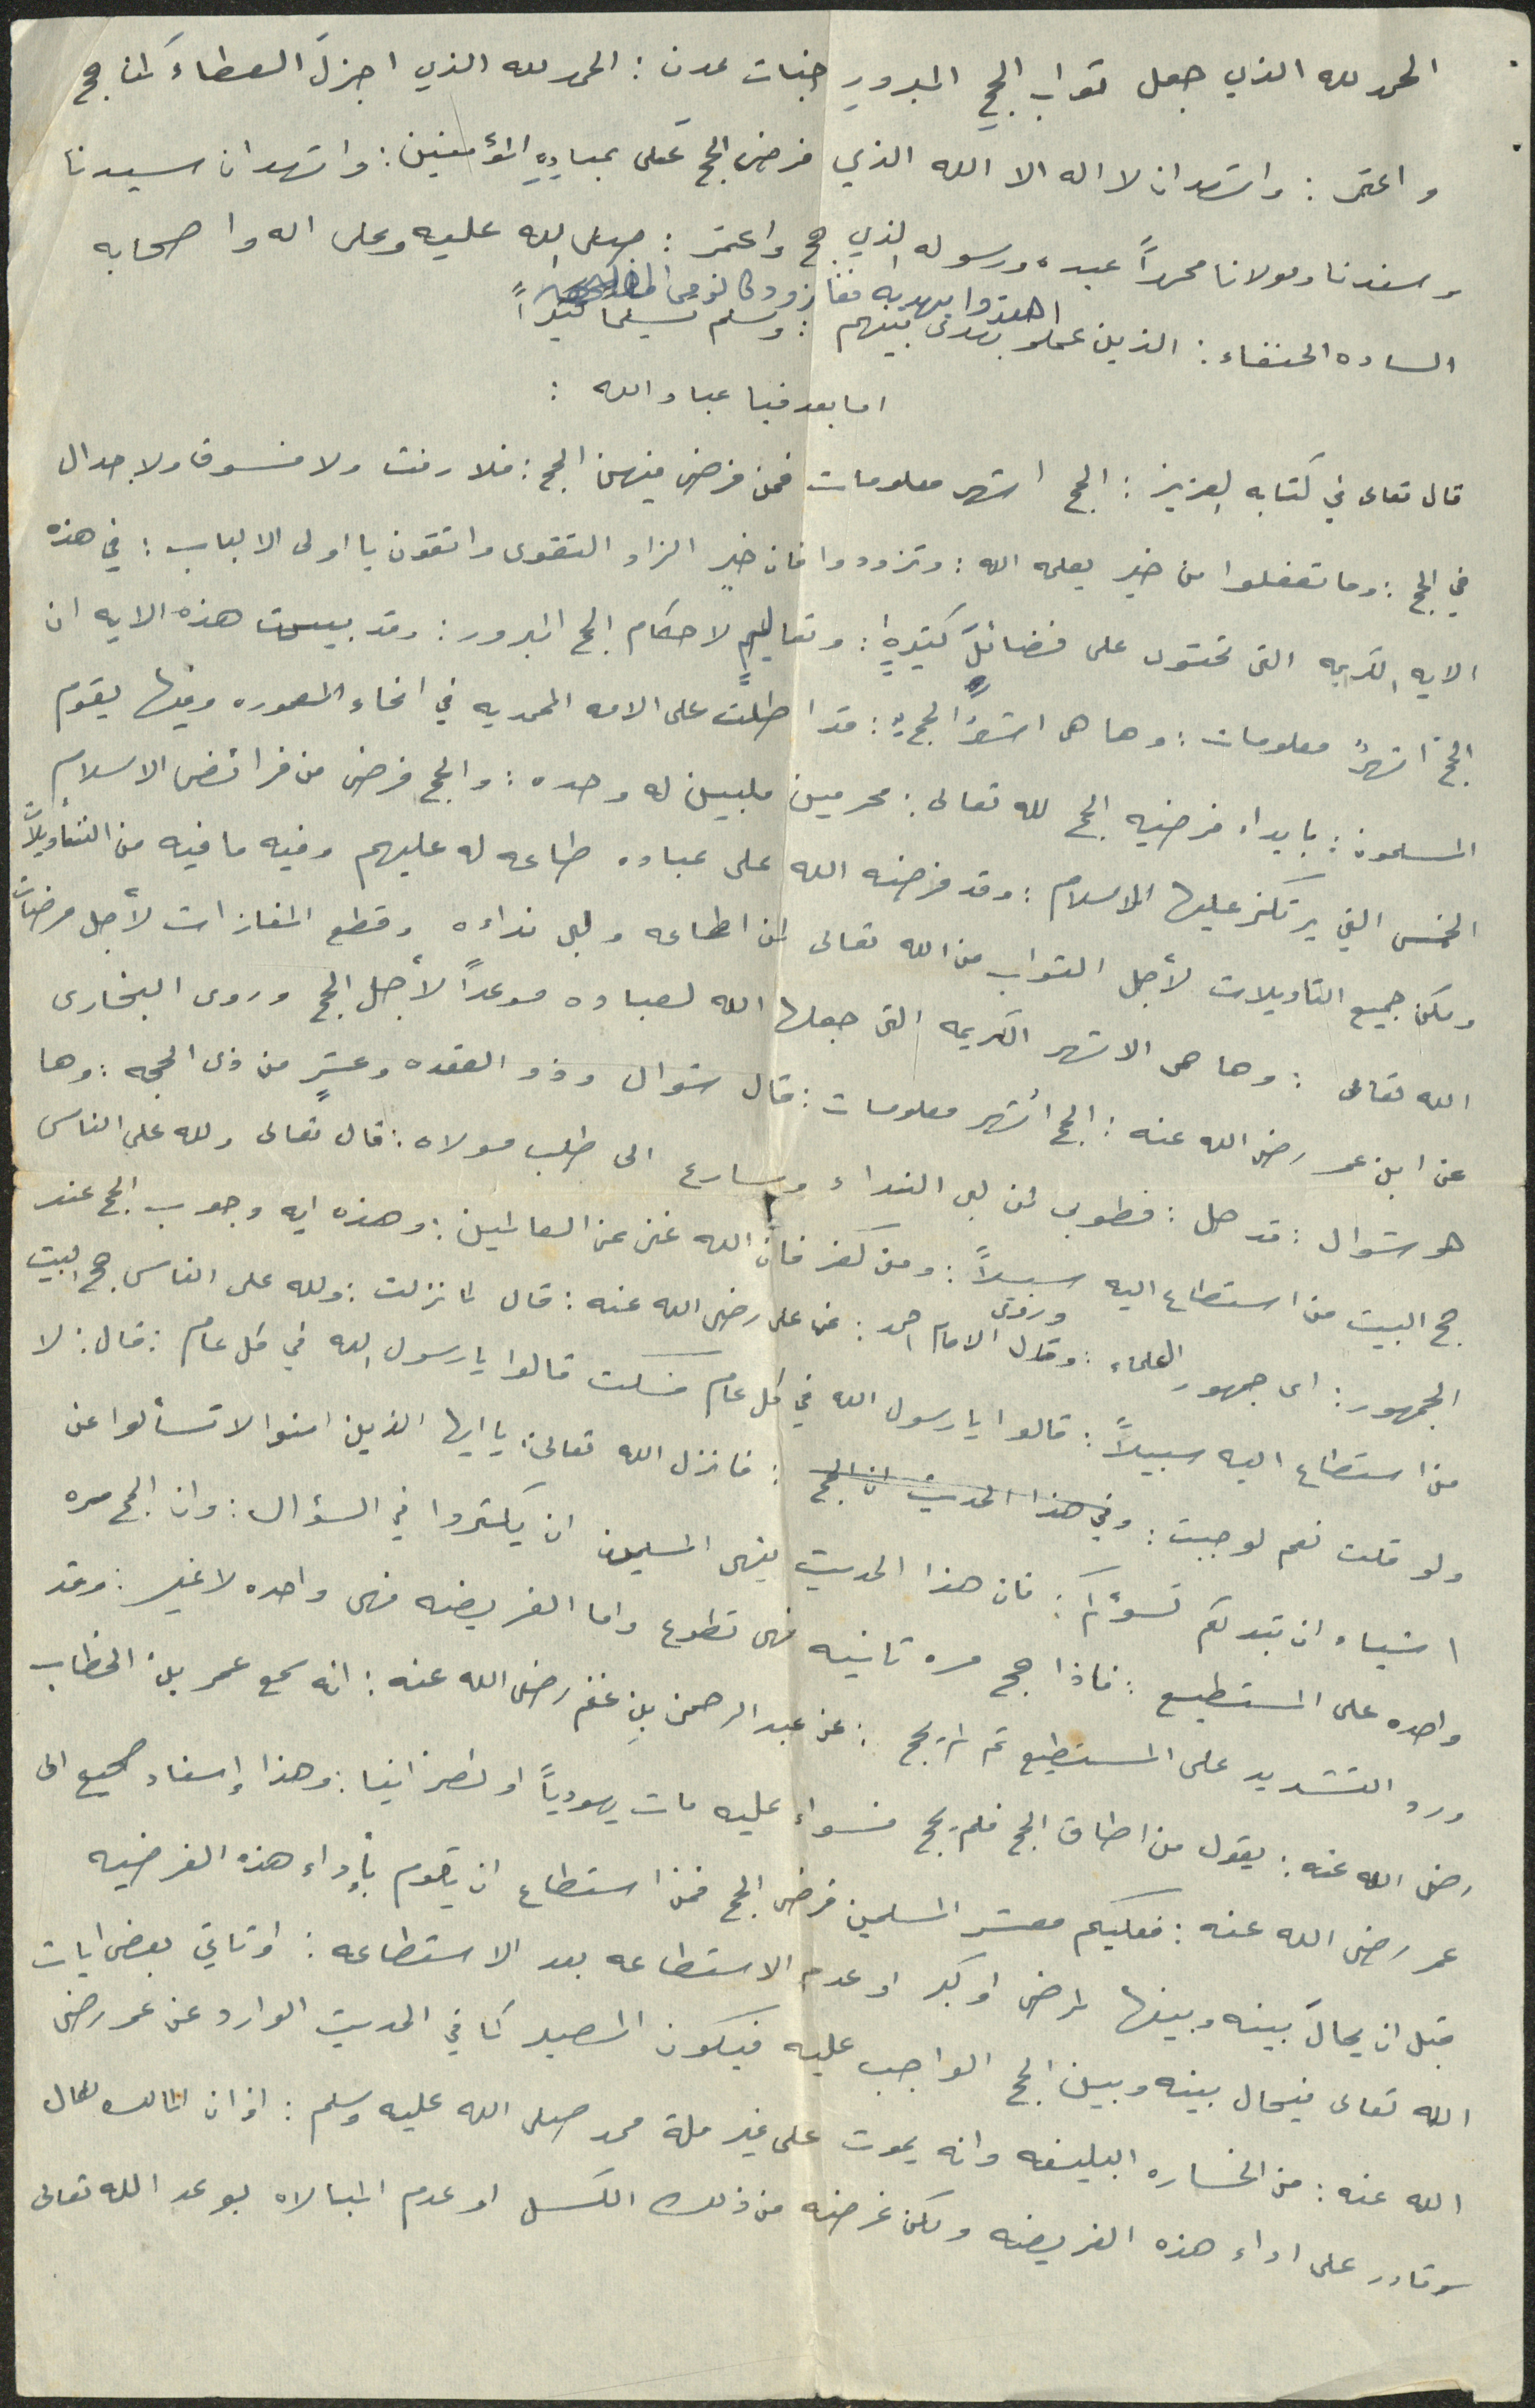 الحمد لله الذي جعل ثواب الحج المبرور جنات عدن : الحمد لله الذي اجزلَ العطاءَ لمن حج
واعتمر : واشهد ان لا اله الا الله الذي فرض الحج على عباده المؤمنين : واشهد ان سيدنا
وسندنا ومولانا محمداً عبده ورسوله الذي حج واعتمرَ : صلى الله عليه وعلى اله واصحابه
اهتدوا بهديه ففازو
الساده الحنفاء : الذين عملو بهدى نبيهم : وسلم تسليما كثيراً
اما بعد فيا عباد الله :
قال تعالى في كتابه العزيز : الحج اشهر معلومات فمن فرض فيهن الحج : فلا رفث ولا فسوق ولا جدال
في الحج : وما تفعلوا من خير يعلمه الله : وتزودوا فان خير الزاد التقوى واتقون يا اولى الالباب : في هذه
الايه الكريمه التى تحتوى على فضائلَ كثيرهٍ : وتعاليمٍ لاحكام الحج المبرور : وقد بينت هذه الايه ان
الحج اشهرٌ معلومات : وها هى اشهرُ الحجِ : قد اطلت على الامه المحمديه في انحاء المعموره وفيها يقوم
المسلمون : باداء فرضيه الحج لله تعالى : محرمين ملبين له وحده : والحج فرض من فرائض الاسلام
الخمس التي يرتكز عليها الاسلام : وقد فرضه الله على عباده طاعه له عليهم وفيه ما فيه من التأويلات
ولكن جميع التاويلات لأجل الثواب من الله تعالى لمن اطاعه ولبى نداءه وقطع المفازات لأجل مرضات
الله تعالى : وها هى الاشهر الكريمه التى جعلها الله لعباده موعداً لأجل الحج وروى البخارى
عن ابن عمر رضى الله عنه : الحج أشهر معلومات : قال شوال وذو القعده وعشرٍ من ذى الحجه : وها
هو شوال : قد حل : فطوبى لمن لبى النداء وسارع الى طلب مولاه : قال تعالى ولله على الناس
حج البيت من استطاع اليه سبيلاً : ومن كفر فان الله غنى عن العالمين : وهذه ايه وجوب الحج عند
الجمهور : اى جمهور العلماء : وروى وقال الامام احمد : عن على رضى الله عنه : قال لما نزلت : ولله على الناس حج البيت
من استطاع اليه سبيلاً : قالوا يا رسول الله في كل عام فسكت قالوا يا رسول الله في كل عام : قال : لا
ولو قلت نعم لوجبت : وفي هذا الحديث ان الحج : فانزل الله تعالى : يا ايها الذين امنوا لا تسألوا عن
اشياء ان تبد لكم تسؤكم : فان هذا الحديث ينهى المسلمون ان يكثروا في السؤال : وان الحج مره
واحده على المستطيع : فاذا حج مره ثانيه فهى تطوع واما الفريضه فهى واحده لا غير : وقد
ورد التشديد على المستطيع ثم لم يحج : عن عبد الرحمن بنِ غنم رضى الله عنه : انه سمع عمر بن الخطاب
رضى الله عنه : يقول من اطاق الحج فلم يحج فسواء عليه مات يهودياً او نصرانيا : وهذا إسناد صحيح الى
عمر رضى الله عنه : فعليكم معشر المسلمين فرض الحج فمن استطاع ان يقوم بأداء هذه الفرضيه
قبل ان يحالَ بينه وبينها لمرض او كبر او عدم الاستطاعه بعد الاستطاعه : او تاتي بعض ايات
الله تعالى فيحال بينه وبين الحج الواجب عليه فيكون المصير كما في الحديث الوارد عن عمر رضى
الله عنه : من الخساره البليغه وانه يموت على غير ملة محمد صلى الله عليه وسلم : اذ ان المالك للمال
وقادر على اداء هذه الفريضه ولكن غرضه من ذلك الكسل او عدم المبالاه بوعد الله تعالى